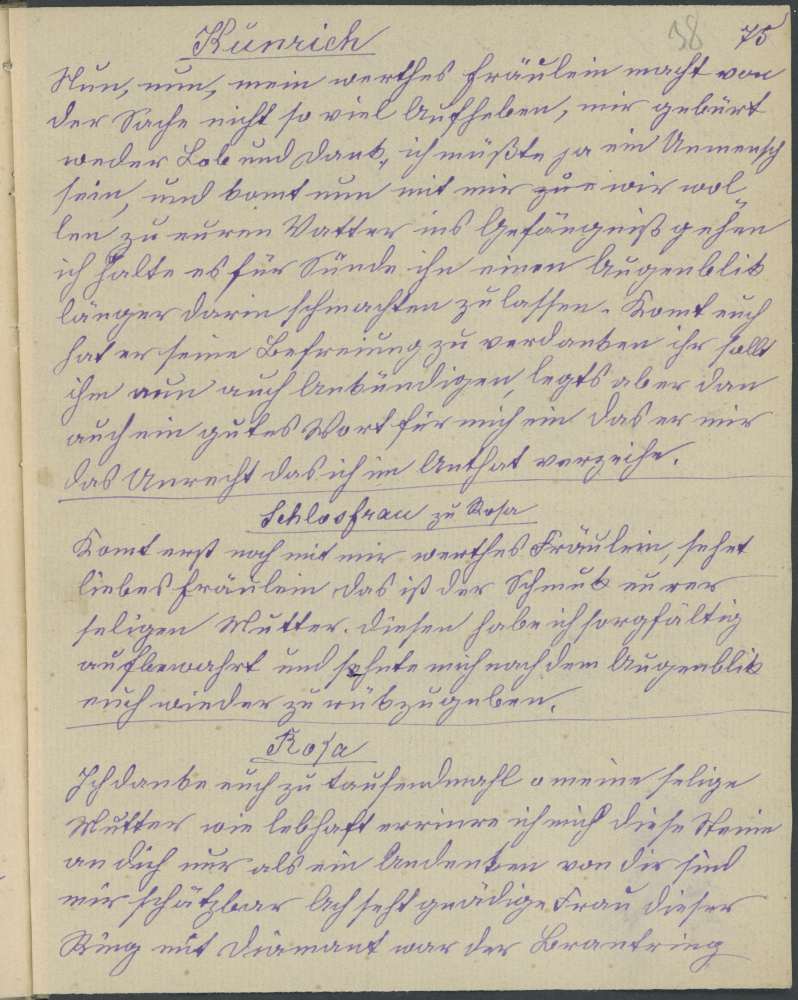 38 75
Kunrich
Nun, nun, mein werthes Fräulein macht von
der Sache nicht so viel Aufheben, mir gebürt
weder Lob und Dank, ich müßte ja ein Unmensch
sein, und komt nun mit mir wir wol
len zu euren Vatter ins Gefängniß gehen
ich halte es für Sünde ihn einen Augenblik
länger darin schmachten zu lassen. Komt euch
hat er seine Befreiung zu verdanken ihr sollt
ihm nun auch Ankündigen, legts aber dan
auch ein gutes Wort für mich ein das er mir
das Unrecht das ich im Anthat verzeihe.
Schlosfrau zu Rosa
Komt erst noch mit mir werthes Fräulein, sehet
liebes Fräulein das ist der Schmuk eurer
seligen Mutter. diesen habe ich sorgfältig
aufbewahrt und sehnte mich nach dem Augenblik
euch wieder zu rükzugeben.
Rosa
Ich danke euch zu tausendmahl o meine selige
Mutter wie lebhaft errinre ich mich diese Steine
an dich nur als ein Andenken von dir sind
mir schätzbar Ach seht gnädige Frau dieser
Ring mit Diamant war der Brautring